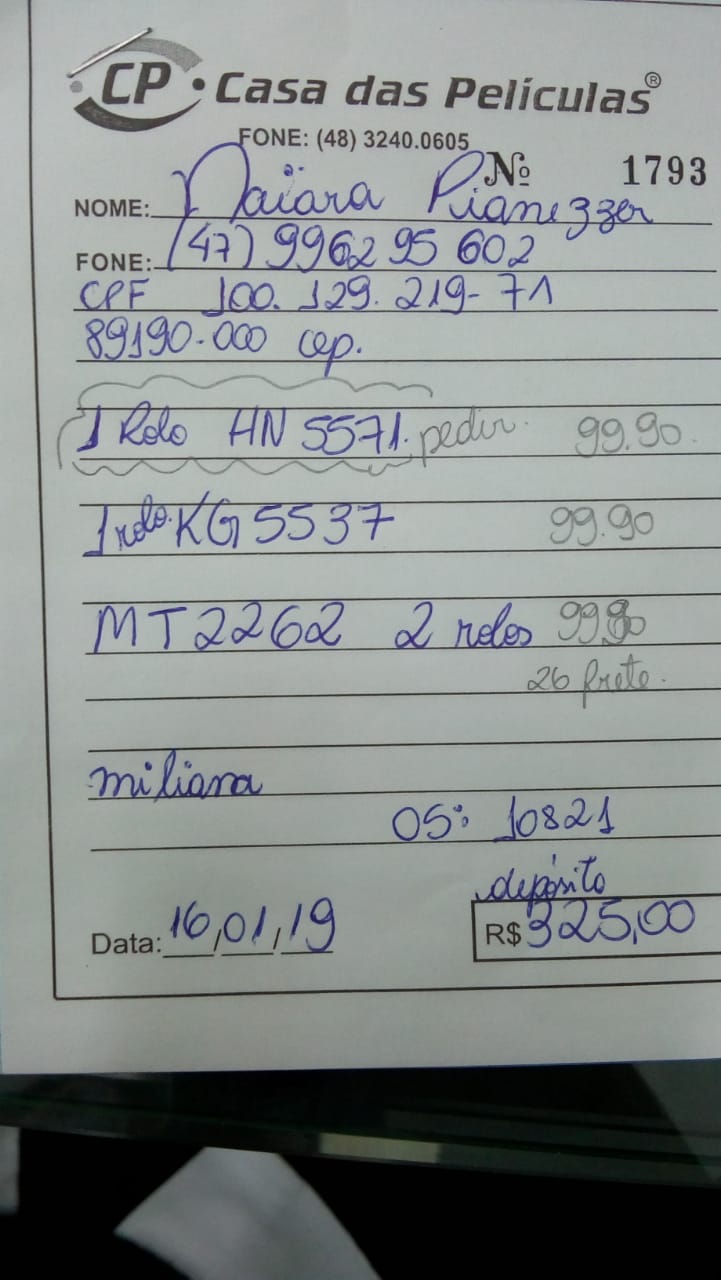 CP • Casa das Películas®
FONE: (48) 3240.0605
Nº 1793
NOME: Naiara Pianezzer
FONE: (47) 9962 95 602
CPF 100. 129. 219-71
89190.000 cep.
1 Rolo HN 5571. pedir. 99.90.
1 rolo KG 5537 99.90
MT2262 2 rolos 99.90
26 frete.
miliana
OS: 10821
depósito
Data: 16/01/19 R$ 325,00